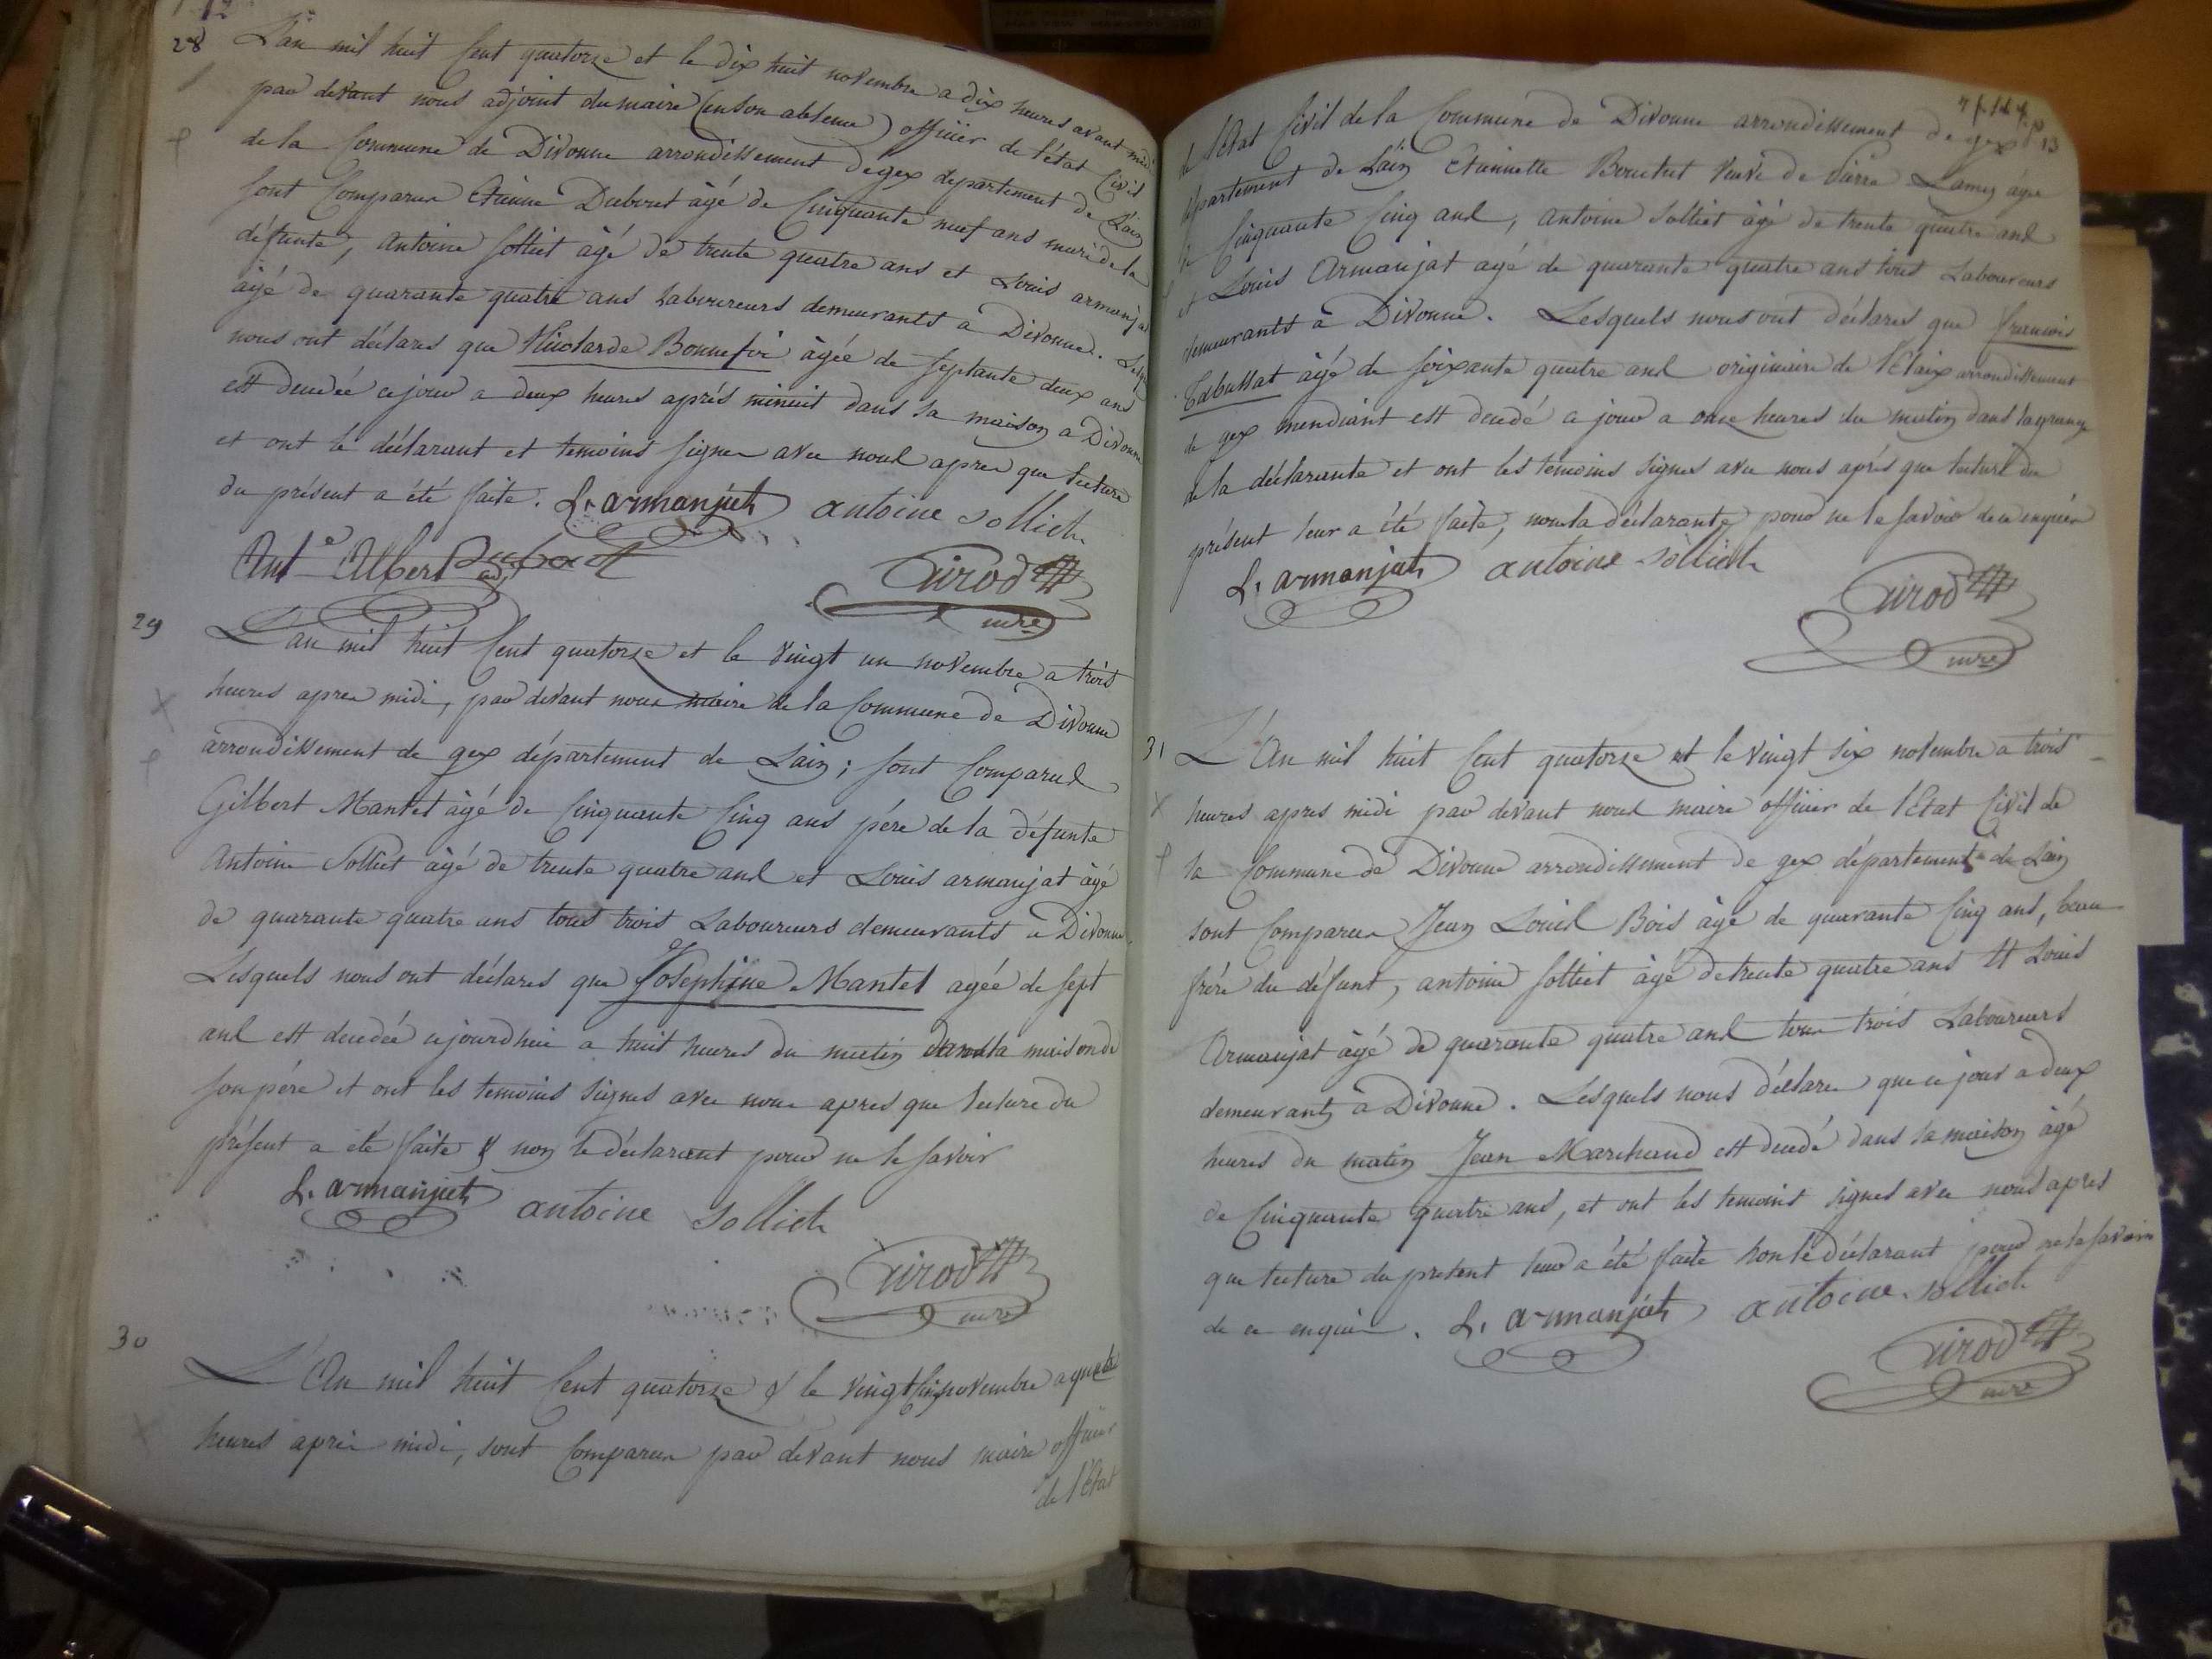 12
28
L'an mil huit Cent quatorze et le dix huit novembre a dix heures avant midi
par devant nous adjoint du maire (en son absence) officier de l'état Civil
de la Commune de Divonne arrondissement de gex département de Lain
sont Comparus Etienne Dubout âgé de Cinquante neuf ans mari de la
défunte, antoine Solliet âgé de trente quatre ans et Louis armanjat
âgé de quarante quatre ans Laboureurs demeurants a Divonne.
nous ont déclarés que Nicolarde Bonnefoi âgée de septante deux ans
est decedée ce jour a deux heures après minuit dans sa maison a Divonne
et ont le déclarant et temoins signer avec nous apres que lecture
du présent a été faite. L. armanjat antoine solliet
Ant.e Albert Dubout adj
Girod mre
29
L'an mil huit Cent quatorze et le vingt un novembre a trois
heures apres midi, par devant nous maire de la Commune de Divonne
arrondissement de gex département de Lain; sont Comparus
Gilbert Mantel âgé de Cinquante Cinq ans père de la défunte
antoine Solliet âgé de trente quatre ans et Louis armanjat âgé
de quarante quatre ans tous trois Laboureurs demeurants a Divonne.
Lesquels nous ont déclarés que Josephine Mantel agée de sept
ans est decedée cejourdhui a huit heures du matin dans la maison de
son père et ont les temoins signés avec nous apres que lecture du
présent a été faite & non le déclarant pour ne le savoir
L. armanjat antoine solliet
Girod mre
30
L'An mil huit Cent quatorze & le vingt Cinq novembre a quatre
heures après midi, sont Comparus par devant nous maire officier
de l'Etat
13
de l'Etat Civil de la Commune de Divonne arrondissement de gex
département de Lain Etiennette Bouchet veuve de Pierre Lamy âgée
de Cinquante Cinq ans, antoine Solliet âgé de trente quatre ans
et Louis Armanjat agé de quarante quatre ans tous Laboureurs
demeurants à Divonne. Lesquels nous ont déclarés que francois
Tabussat âgé de soixante quatre ans originaire de arrondissement
de gex mendiant est decedé ce jour a onze heures du matin dans la grange
de la déclarante et ont les temoins signés avec nous après que lecture du
présent leur a été faite, non la déclarante pour ne le savoir de ce enquise
L. armanjat antoine solliet
Girod mre
31
L'An mil huit Cent quatorze et le vingt six novembre a trois
heures apres midi par devant nous maire officier de l'Etat Civil de
la Commune de Divonne arrondissement de gex département de Lain
sont Comparus Jean Louis Bois âgé de quarante Cinq ans, beau
frère du défunt, antoine Solliet âgé de trente quatre ans et Louis
Armanjat âgé de quarante quatre ans tous trois Laboureurs
demeurants à Divonne. Lesquels nous déclare que ce jour a deux
heures du matin Jean Marchand est decedé dans sa maison âgé
de Cinquante quatre ans, et ont les temoins signés avec nous apres
que lecture du present leur a été faite non le déclarant pour ne le savoir
de ce enquis. L. armanjat antoine solliet
Girod mre